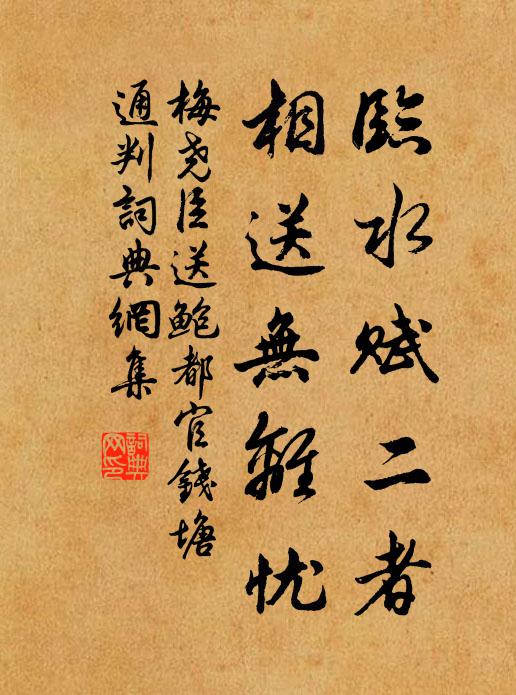 臨水賦二者
相送無離忧
梅尧臣送鮑都官錢塘
通判詞典網集
詞典
网印